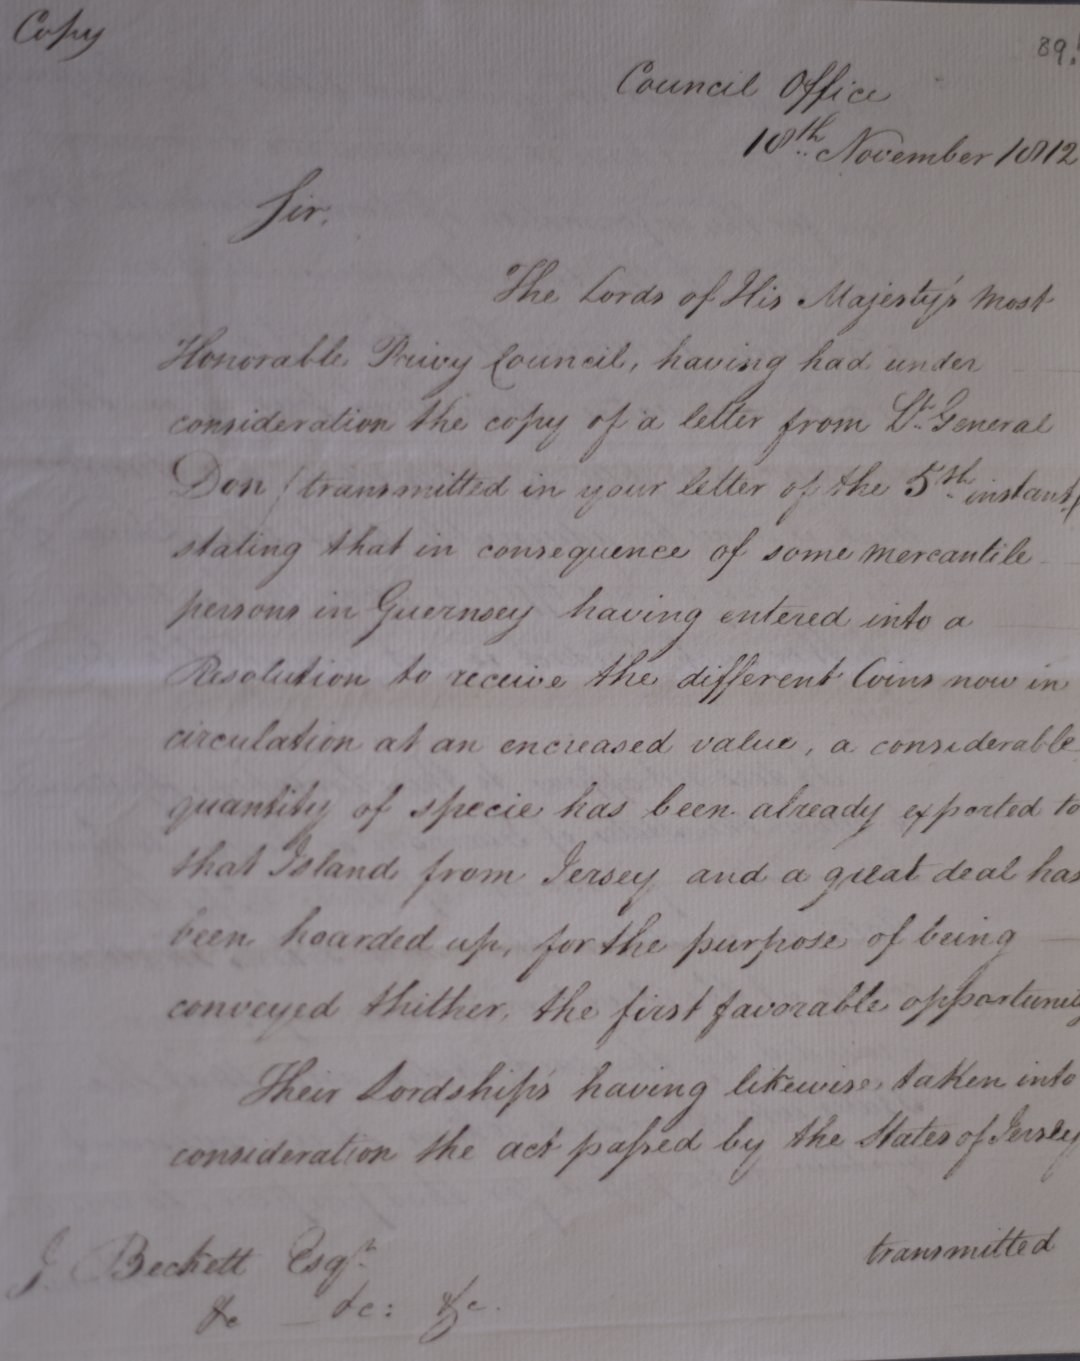 Copy
89.
Council Office
18th November 1812
Sir,
The Lords of His Majesty's most
Honorable Privy Council, having had under
consideration the copy of a letter from Lt. General
Don (transmitted in your letter of the 5th instant)
stating that in consequence of some mercantile
persons in Guernsey having entered into a
Resolution to receive the different Coins now in
circulation at an encreased value, a considerable
quantity of specie has been already exported to
that Island from Jersey and a great deal has
been hoarded up, for the purpose of being
conveyed thither, the first favorable opportunity
Their Lordships having likewise taken into
consideration the act passed by the States of Jersey
transmitted
J. Beckett Esqr.
&c &c: &c.